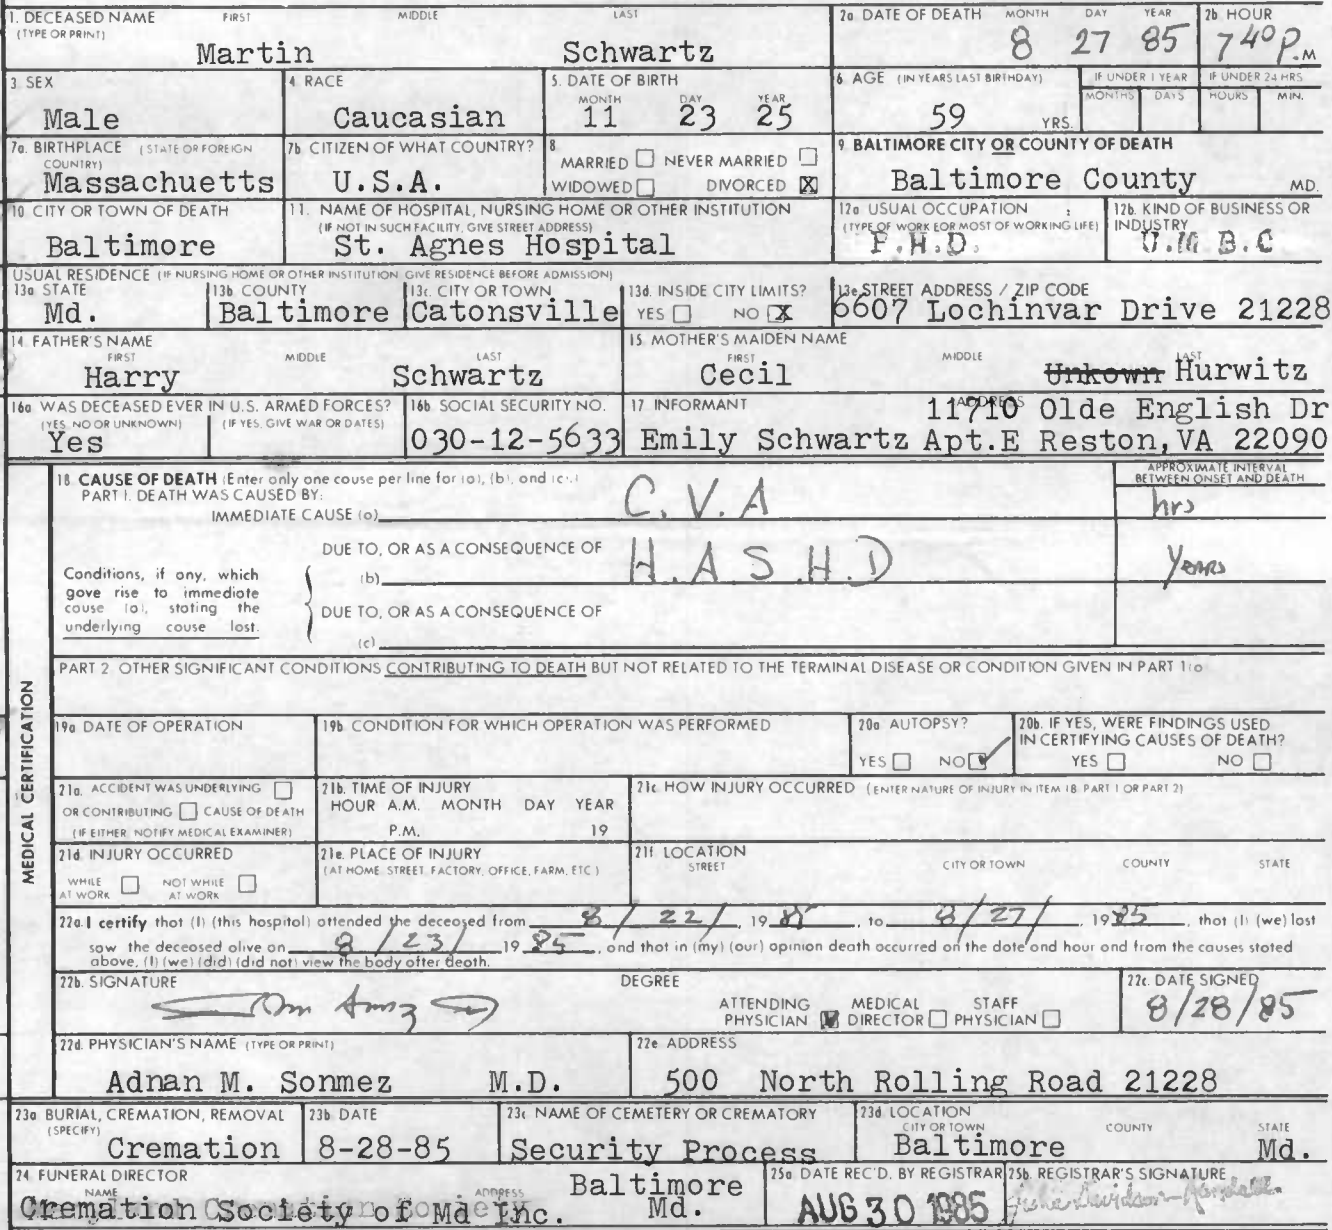 1. DECEASED NAME FIRST MIDDLE LAST
(TYPE OR PRINT)
Martin Schwartz
2a DATE OF DEATH MONTH DAY YEAR
8 27 85
2b HOUR
7 40 P.M
3 SEX
Male
4 RACE
Caucasian
5. DATE OF BIRTH
MONTH DAY YEAR
11 23 25
6 AGE (IN YEARS LAST BIRTHDAY)
59 YRS.
IF UNDER 1 YEAR
MONTHS DAYS
IF UNDER 24 HRS
HOURS MIN.
7a. BIRTHPLACE (STATE OR FOREIGN
COUNTRY)
Massachuetts
7b CITIZEN OF WHAT COUNTRY?
U.S.A.
8
MARRIED NEVER MARRIED
WIDOWED DIVORCED X
9 BALTIMORE CITY OR COUNTY OF DEATH
Baltimore County MD.
10 CITY OR TOWN OF DEATH
Baltimore
11. NAME OF HOSPITAL, NURSING HOME OR OTHER INSTITUTION
(IF NOT IN SUCH FACILITY, GIVE STREET ADDRESS)
St. Agnes Hospital
12a USUAL OCCUPATION
(TYPE OF WORK FOR MOST OF WORKING LIFE)
P.H.D.
12b. KIND OF BUSINESS OR
INDUSTRY
U.M.B.C
USUAL RESIDENCE (IF NURSING HOME OR OTHER INSTITUTION GIVE RESIDENCE BEFORE ADMISSION)
13a STATE
Md.
13b COUNTY
Baltimore
13c. CITY OR TOWN
Catonsville
13d. INSIDE CITY LIMITS?
YES NO X
13e STREET ADDRESS / ZIP CODE
6607 Lochinvar Drive 21228
14 FATHER'S NAME
FIRST MIDDLE LAST
Harry Schwartz
15 MOTHER'S MAIDEN NAME
FIRST MIDDLE LAST
Cecil Unkown Hurwitz
16a WAS DECEASED EVER IN U.S. ARMED FORCES?
(YES, NO OR UNKNOWN) (IF YES, GIVE WAR OR DATES)
Yes
16b SOCIAL SECURITY NO.
030-12-5633
17 INFORMANT ADDRESS
11710 Olde English Dr
Emily Schwartz Apt.E Reston,VA 22090
MEDICAL CERTIFICATION
18 CAUSE OF DEATH (Enter only one cause per line for (a), (b), and (c).)
PART I. DEATH WAS CAUSED BY:
APPROXIMATE INTERVAL
BETWEEN ONSET AND DEATH
IMMEDIATE CAUSE (a) C.V.A hrs
DUE TO, OR AS A CONSEQUENCE OF
(b) H.A.S.H.D Years
Conditions, if any, which
gave rise to immediate
cause (a), stating the
underlying cause last.
DUE TO, OR AS A CONSEQUENCE OF
(c)
PART 2 OTHER SIGNIFICANT CONDITIONS CONTRIBUTING TO DEATH BUT NOT RELATED TO THE TERMINAL DISEASE OR CONDITION GIVEN IN PART 1(a
19a DATE OF OPERATION
19b CONDITION FOR WHICH OPERATION WAS PERFORMED
20a AUTOPSY?
YES NO
20b. IF YES, WERE FINDINGS USED
IN CERTIFYING CAUSES OF DEATH?
YES NO
21a. ACCIDENT WAS UNDERLYING
OR CONTRIBUTING CAUSE OF DEATH
(IF EITHER, NOTIFY MEDICAL EXAMINER)
21b. TIME OF INJURY
HOUR A.M. MONTH DAY YEAR
P.M. 19
21c HOW INJURY OCCURRED (ENTER NATURE OF INJURY IN ITEM 18 PART 1 OR PART 2)
21d INJURY OCCURRED
WHILE AT WORK NOT WHILE AT WORK
21e. PLACE OF INJURY
(AT HOME, STREET, FACTORY, OFFICE, FARM, ETC )
21f LOCATION
STREET CITY OR TOWN COUNTY STATE
22a I certify that (I) (this hospital) attended the deceased from 8/22/ 1985 to 8/27/ 1985, that (I) (we) last
saw the deceased alive on 8/23/ 1985, and that in (my) (our) opinion death occurred on the date and hour and from the causes stated
above, (I) (we) (did) (did not) view the body after death.
22b. SIGNATURE
DEGREE
ATTENDING PHYSICIAN MEDICAL DIRECTOR STAFF PHYSICIAN
22c. DATE SIGNED
8/28/85
22d. PHYSICIAN'S NAME (TYPE OR PRINT)
Adnan M. Sonmez M.D.
22e ADDRESS
500 North Rolling Road 21228
23a BURIAL, CREMATION, REMOVAL
(SPECIFY)
Cremation
23b DATE
8-28-85
23c NAME OF CEMETERY OR CREMATORY
Security Process
23d LOCATION
CITY OR TOWN COUNTY STATE
Baltimore Md.
24 FUNERAL DIRECTOR
NAME ADDRESS
Cremation Society of Md Inc. Baltimore Md.
25a DATE REC'D. BY REGISTRAR
AUG 30 1985
25b. REGISTRAR'S SIGNATURE